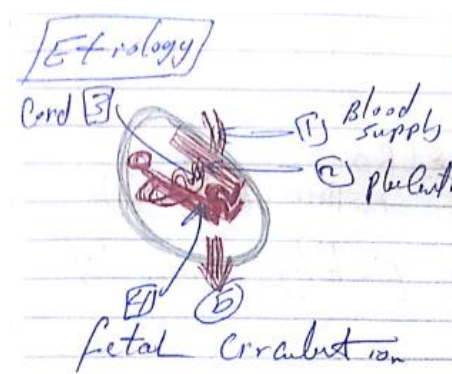 Etiology
Cord 3
1 Blood
supply
2
4 5
fetal Circulation